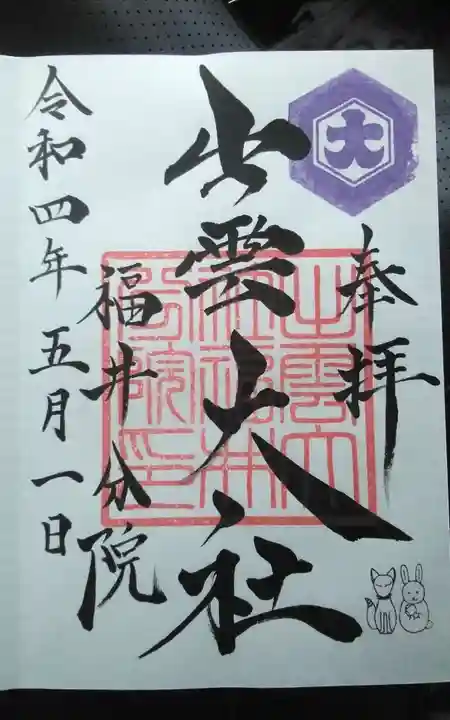 大
奉拝
出雲大社
福井分院
令和四年五月一日
出雲大
社福井
分院印